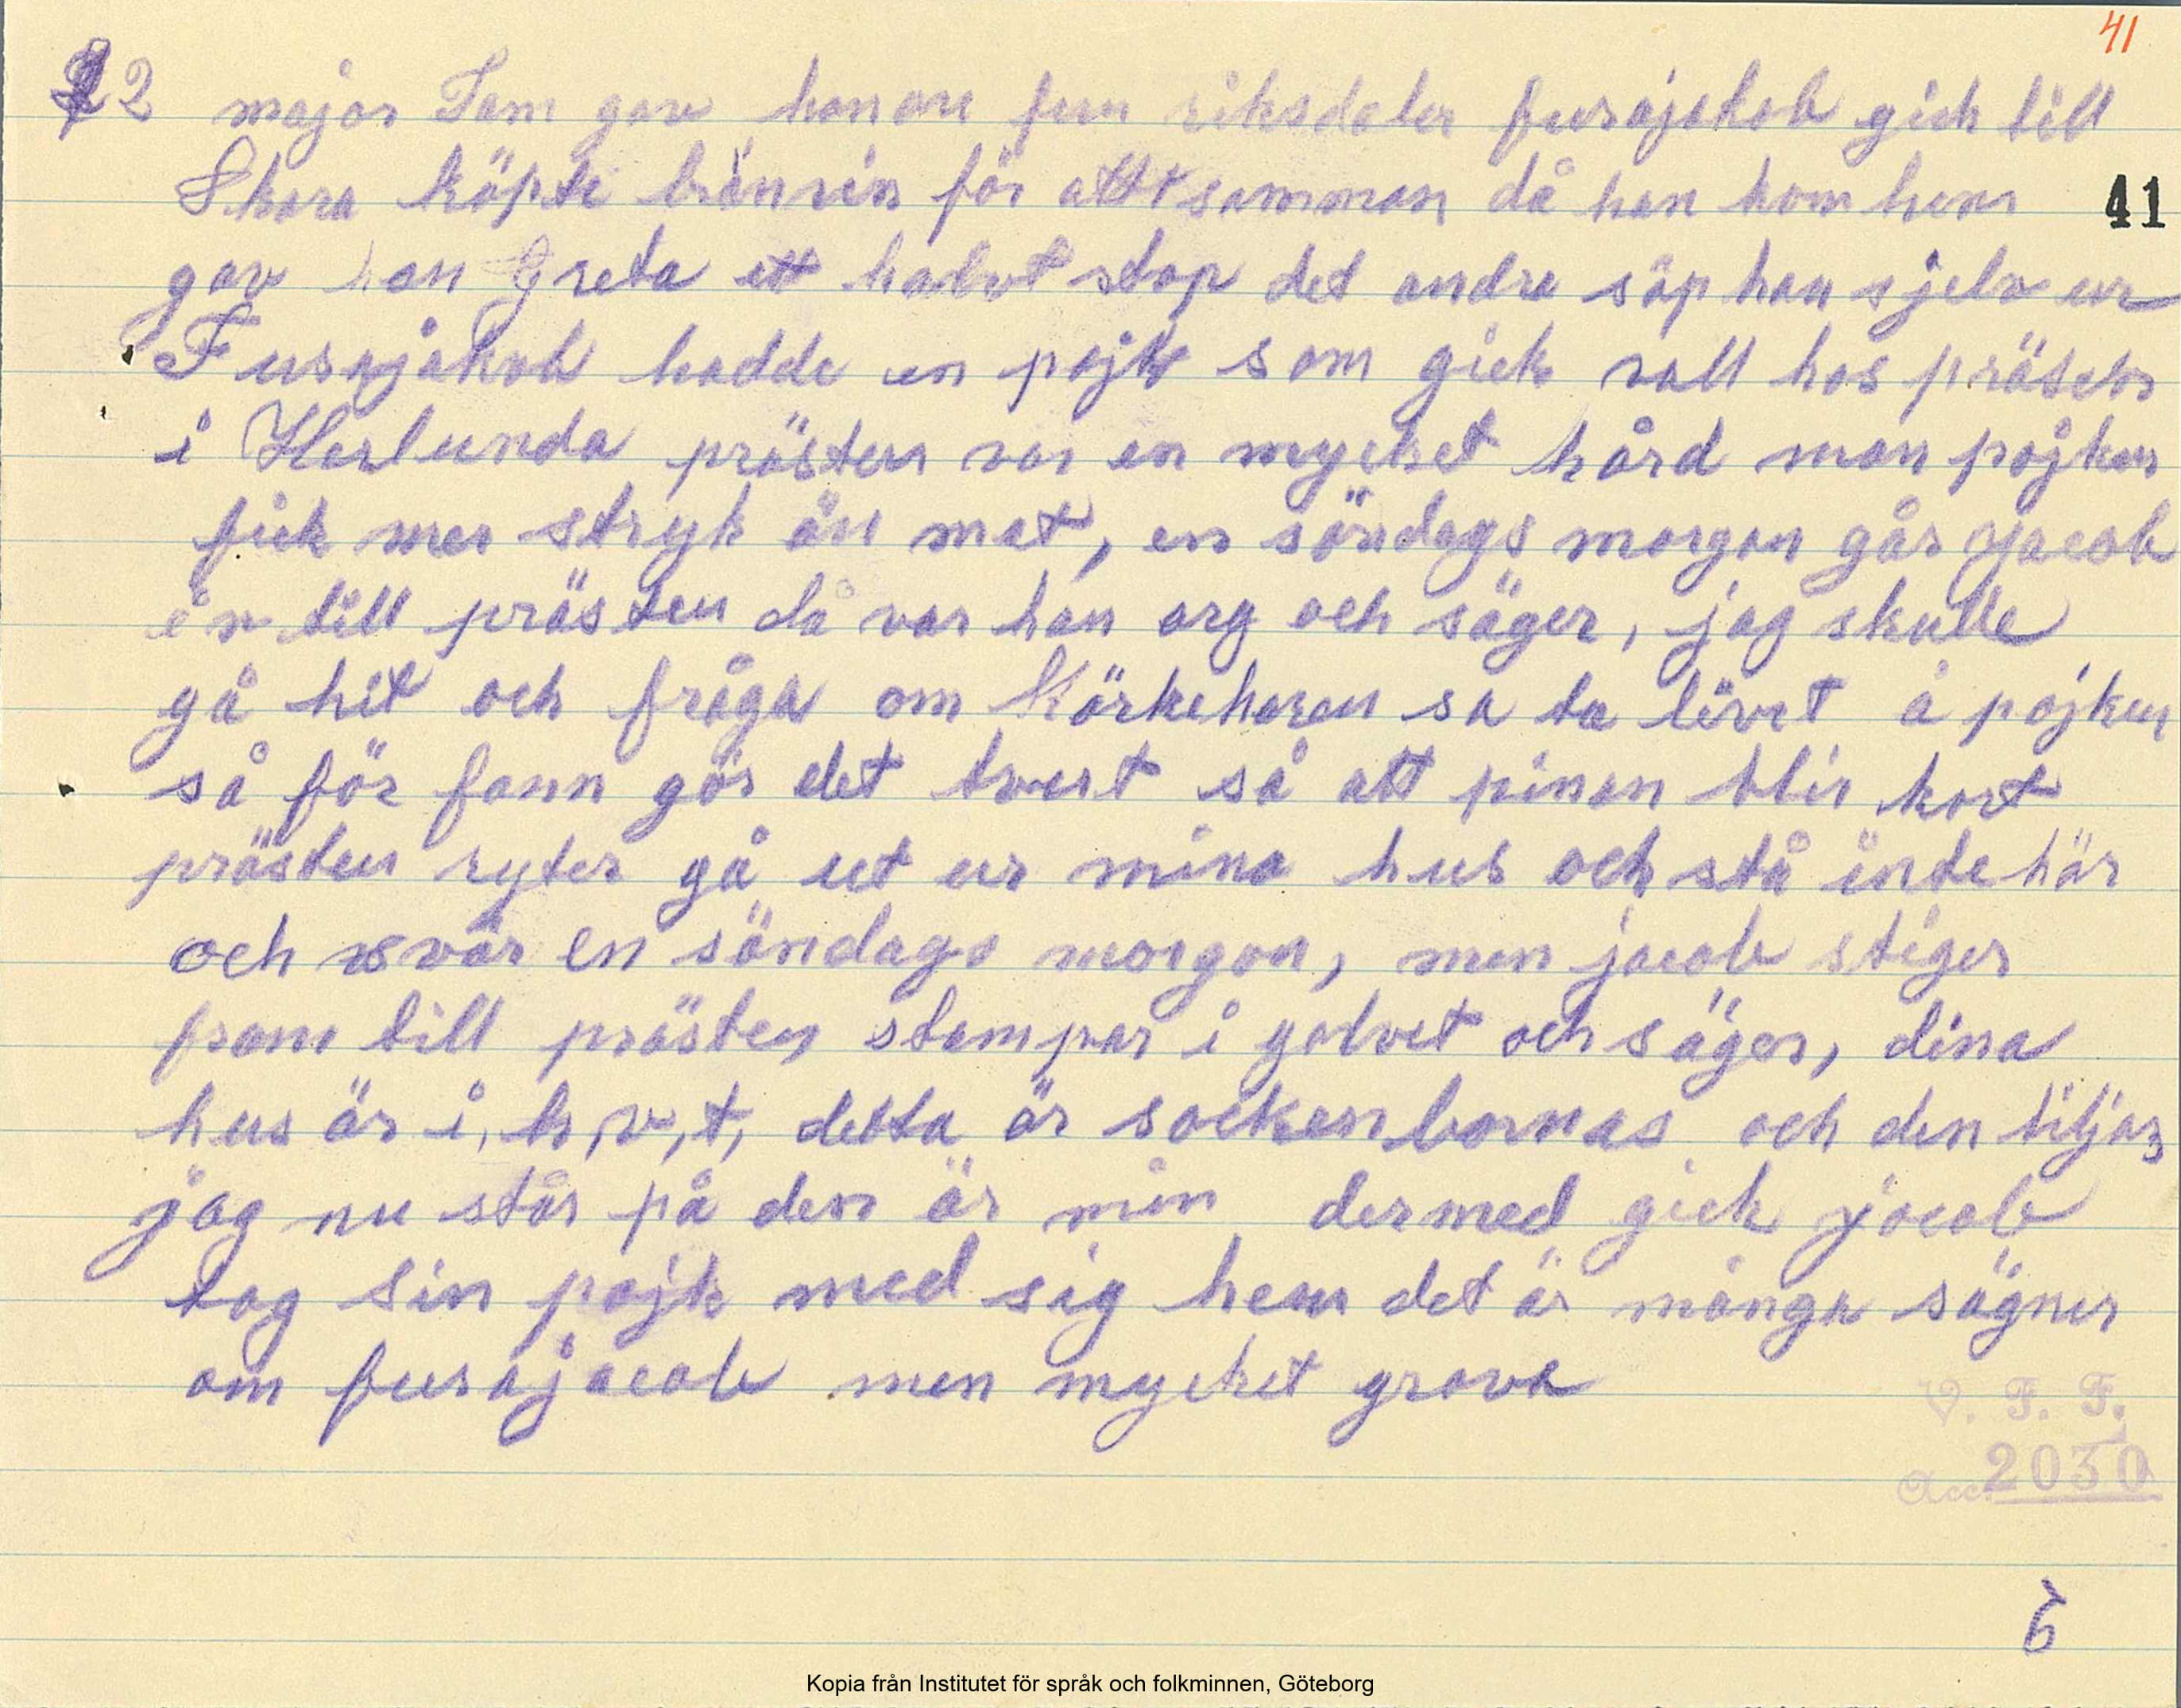 41
2 major Tam gav honom fem riksdaler furajakob gick till
Skara köpte bränvin för allt samman då han kom hem
41
gav han Greta ett halvt stop det andra söp han sjelv ur
Furajakob hadde en pojk som gick vall hos prästen
i Harlunda prästen var en mycket hård man pojken
fick mer stryk än mat, en söndags morgon går jacob
in till prästen då var han arg och säger, jag skulle
gå hit och fråga om Körkeharen sa ta livet å pojken
så för fann gör det tvert så att pinan blir kort
prästen ryter gå ut ur mina hus och stå inte här
och svär en söndags morgon, men jacob stiger
fram till prästen stampar i golvet och säger, dina
hus är i, h, v, t, detta är sockenbornas och den tiljan
jag nu står på den är min dermed gick jacob
tog sin pojk med sig hem det är många sägner
om furajacob men mycket grova
V. F. F.
Acc. 2030
6
Kopia från Institutet för språk och folkminnen, Göteborg